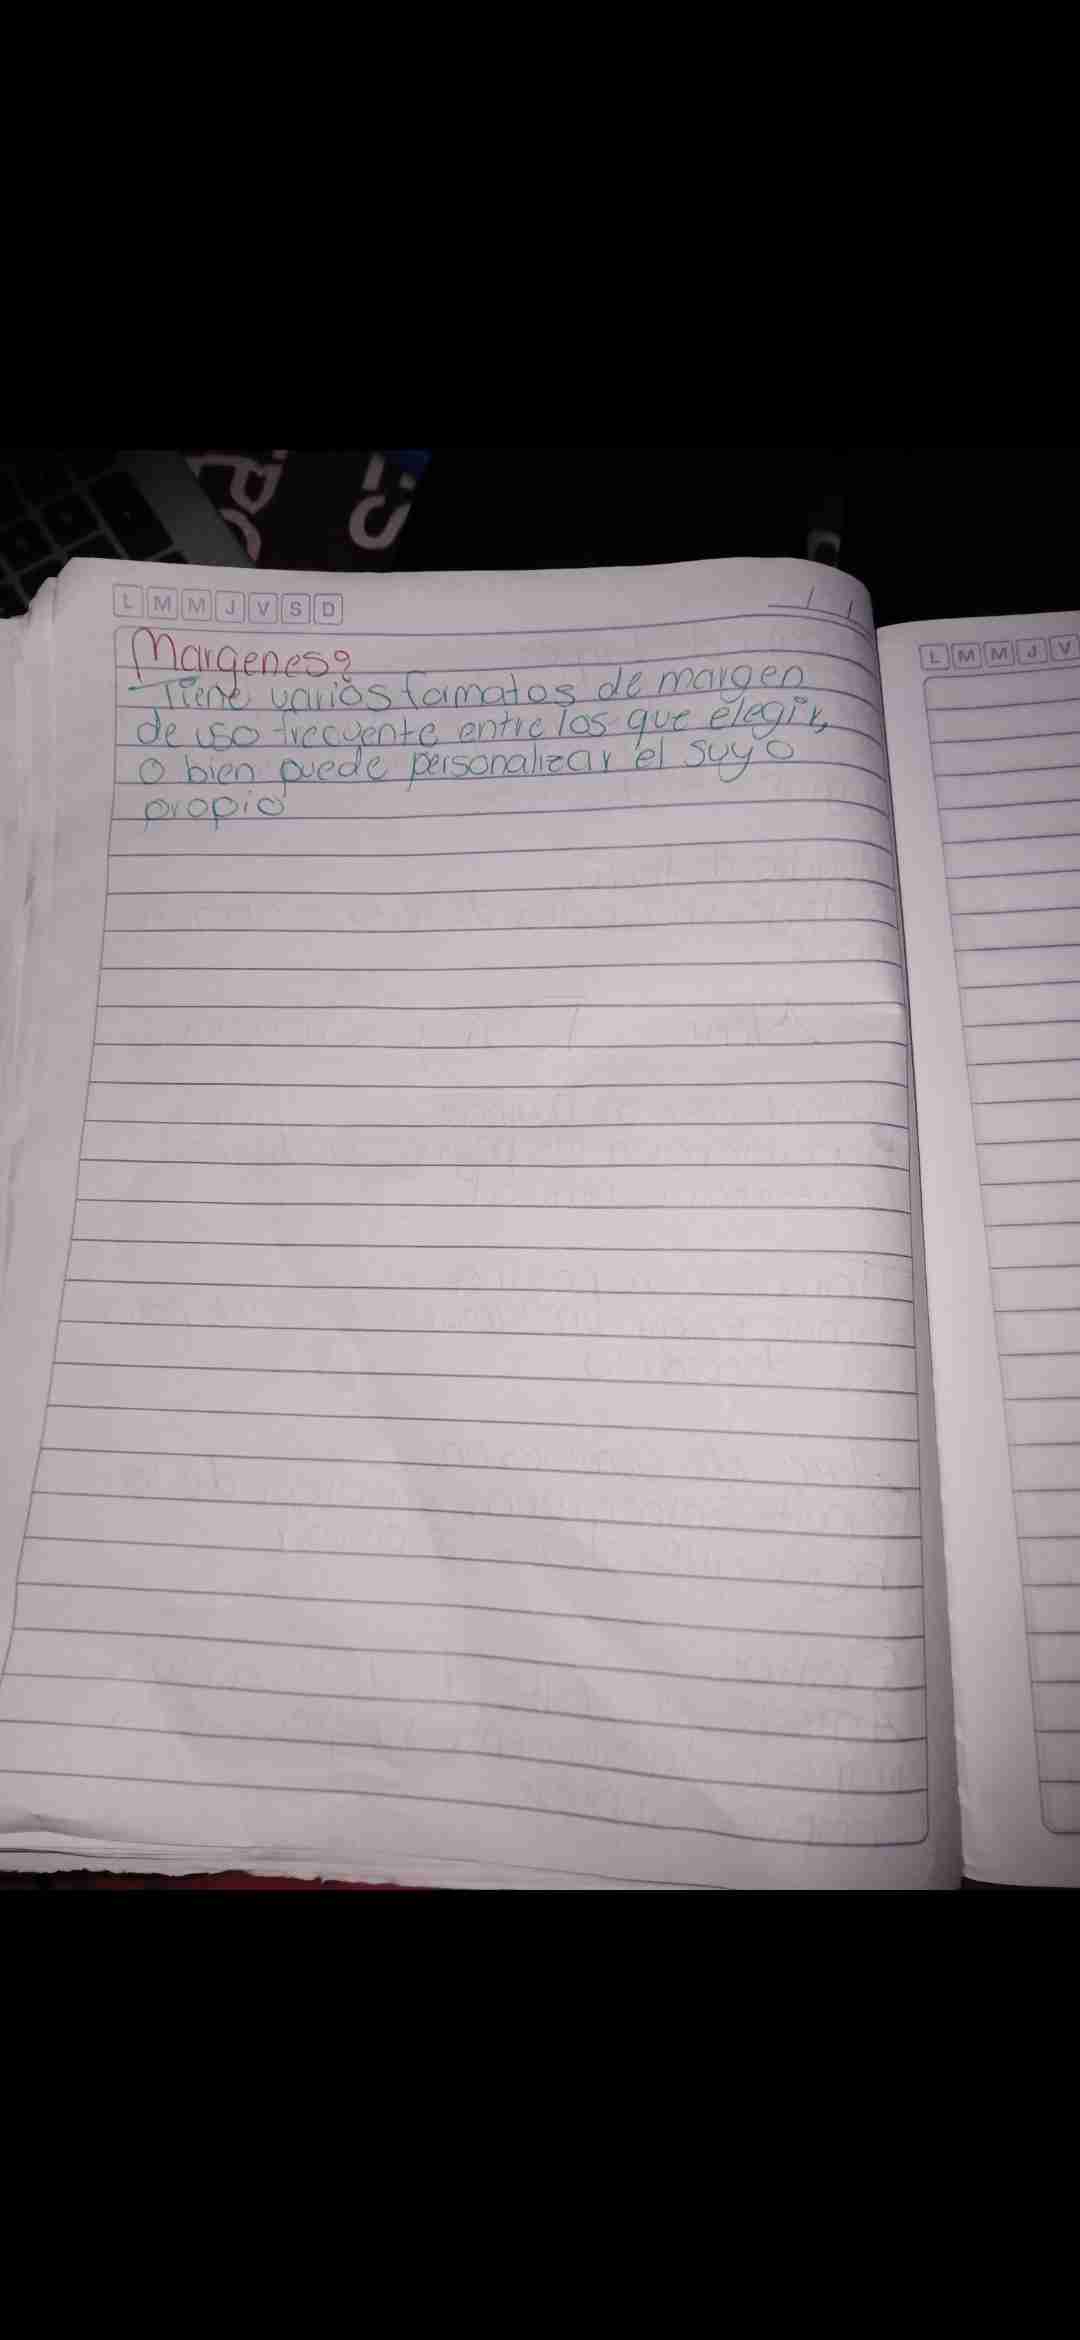 L M M J V S D
Margenes?
Tiene varios formatos de margen
de uso frecuente entre los que elegir,
o bien puede personalizar el suyo
propio
L M M J V